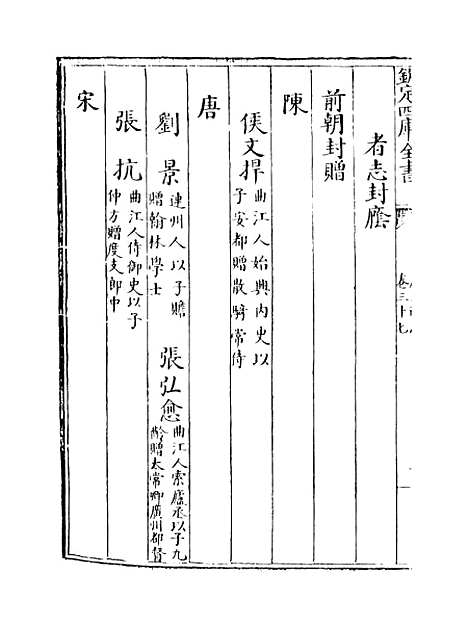 欽定四庫全書
卷三十七
者志封廕
前朝封贈
陳
侯文捍 曲江人始興內史以
子安都贈散騎常侍
唐
劉景 連州人以子贍
贈翰林學士
張弘愈 曲江人索廬丞以子九
齡贈太常卿廣州都督
張抗 曲江人侍御史以子
仲方贈度支郎中
宋